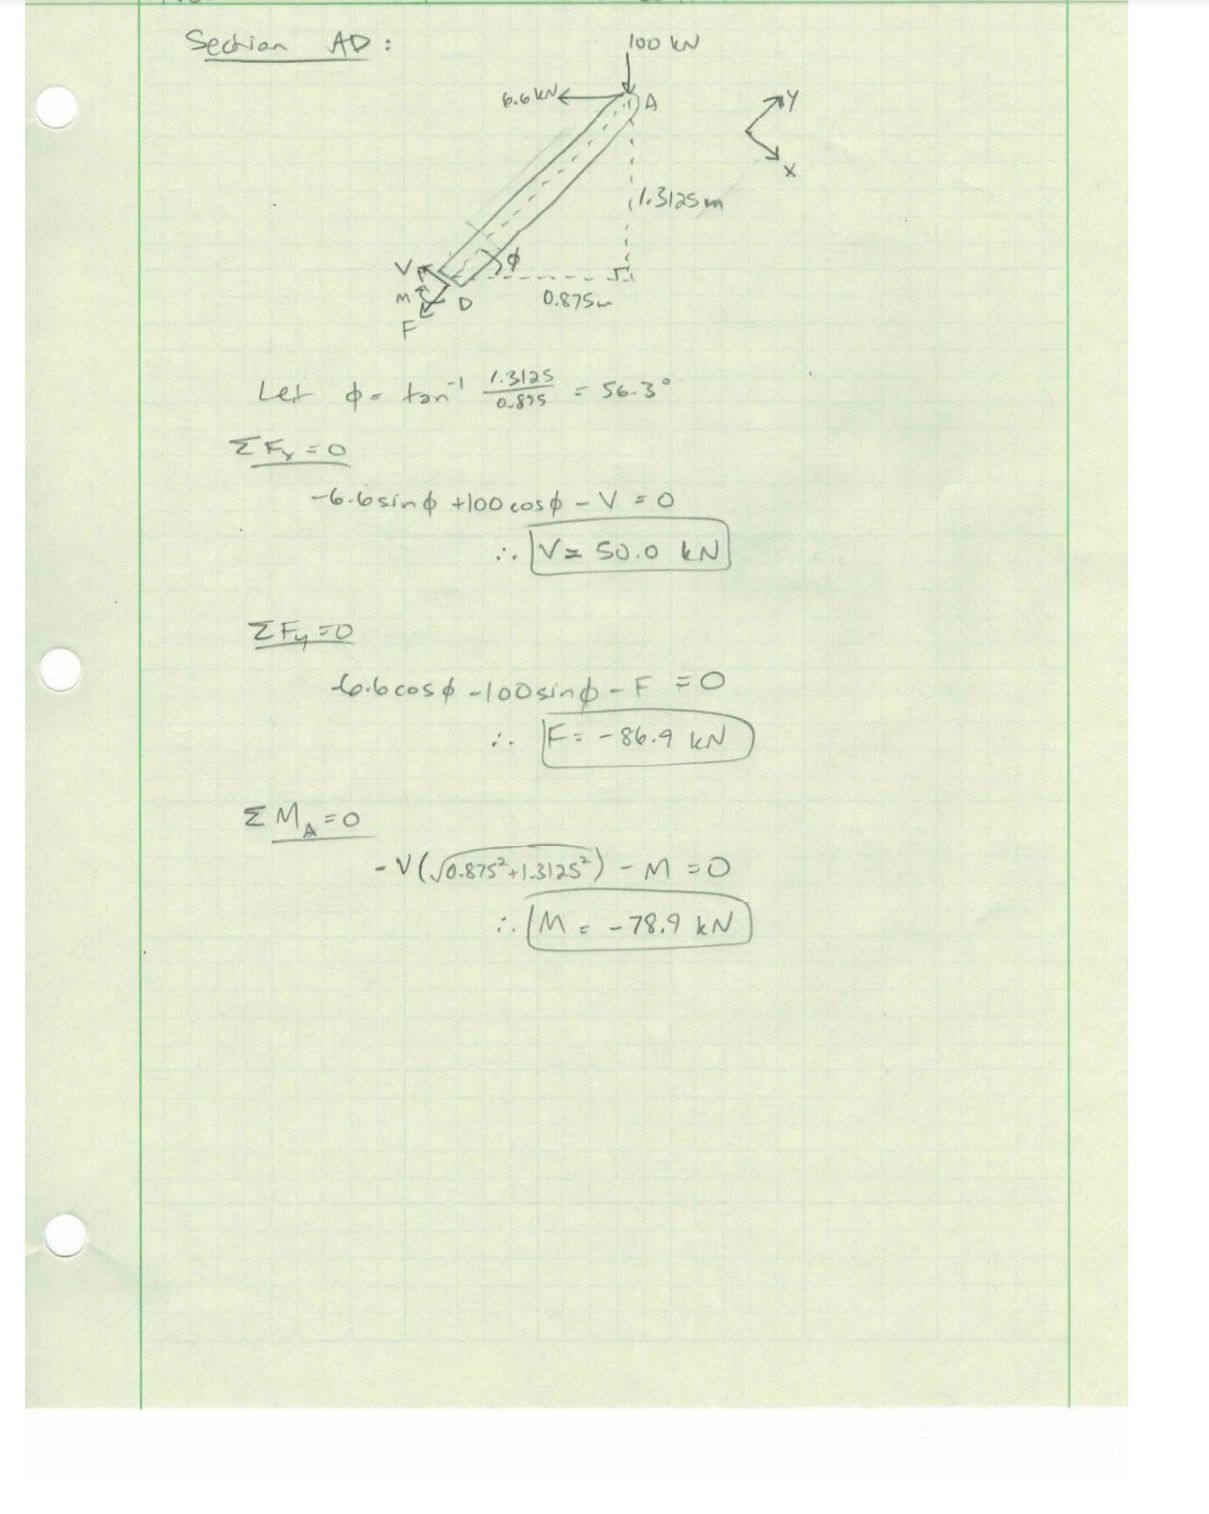 Section AD:
100 kN
6.6 kN
A
Y
X
1.3125 m
φ
V
M
D
0.875m
F
Let φ = tan⁻¹ 1.3125/0.875 = 56.3°
ΣFx = 0
-6.6 sinφ + 100 cosφ - V = 0
∴ V = 50.0 kN
ΣFy = 0
-6.6 cosφ - 100 sinφ - F = 0
∴ F = -86.9 kN
ΣM_A = 0
-V(√0.875²+1.3125²) - M = 0
∴ M = -78.9 kN